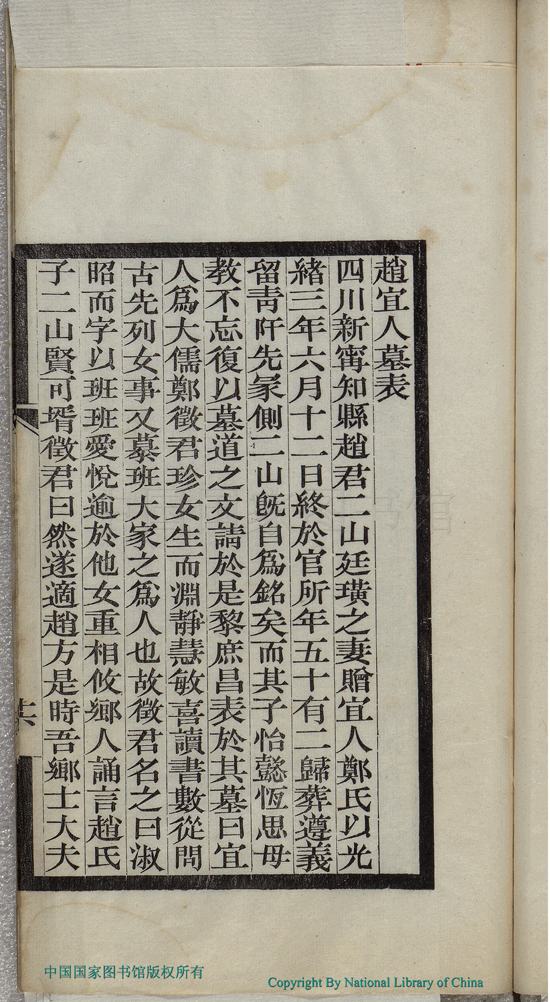 趙宜人墓表
四川新甯知縣趙君二山廷璜之妻贈宜人鄭氏以光
緒三年六月十二日終於官所年五十有二歸葬遵義
留靑阡先冢側二山旣自爲銘矣而其子怡懿恆思母
教不忘復以墓道之文請於是黎庶昌表於其墓曰宜
人爲大儒鄭徵君珍女生而淵靜慧敏喜讀書數從問
古先列女事又慕班大家之爲人也故徵君名之曰淑
昭而字以班班愛悅逾於他女重相攸鄉人誦言趙氏
子二山賢可壻徵君曰然遂適趙方是時吾鄉士大夫
十六
中国国家图书馆版权所有
Copyright By National Library of China